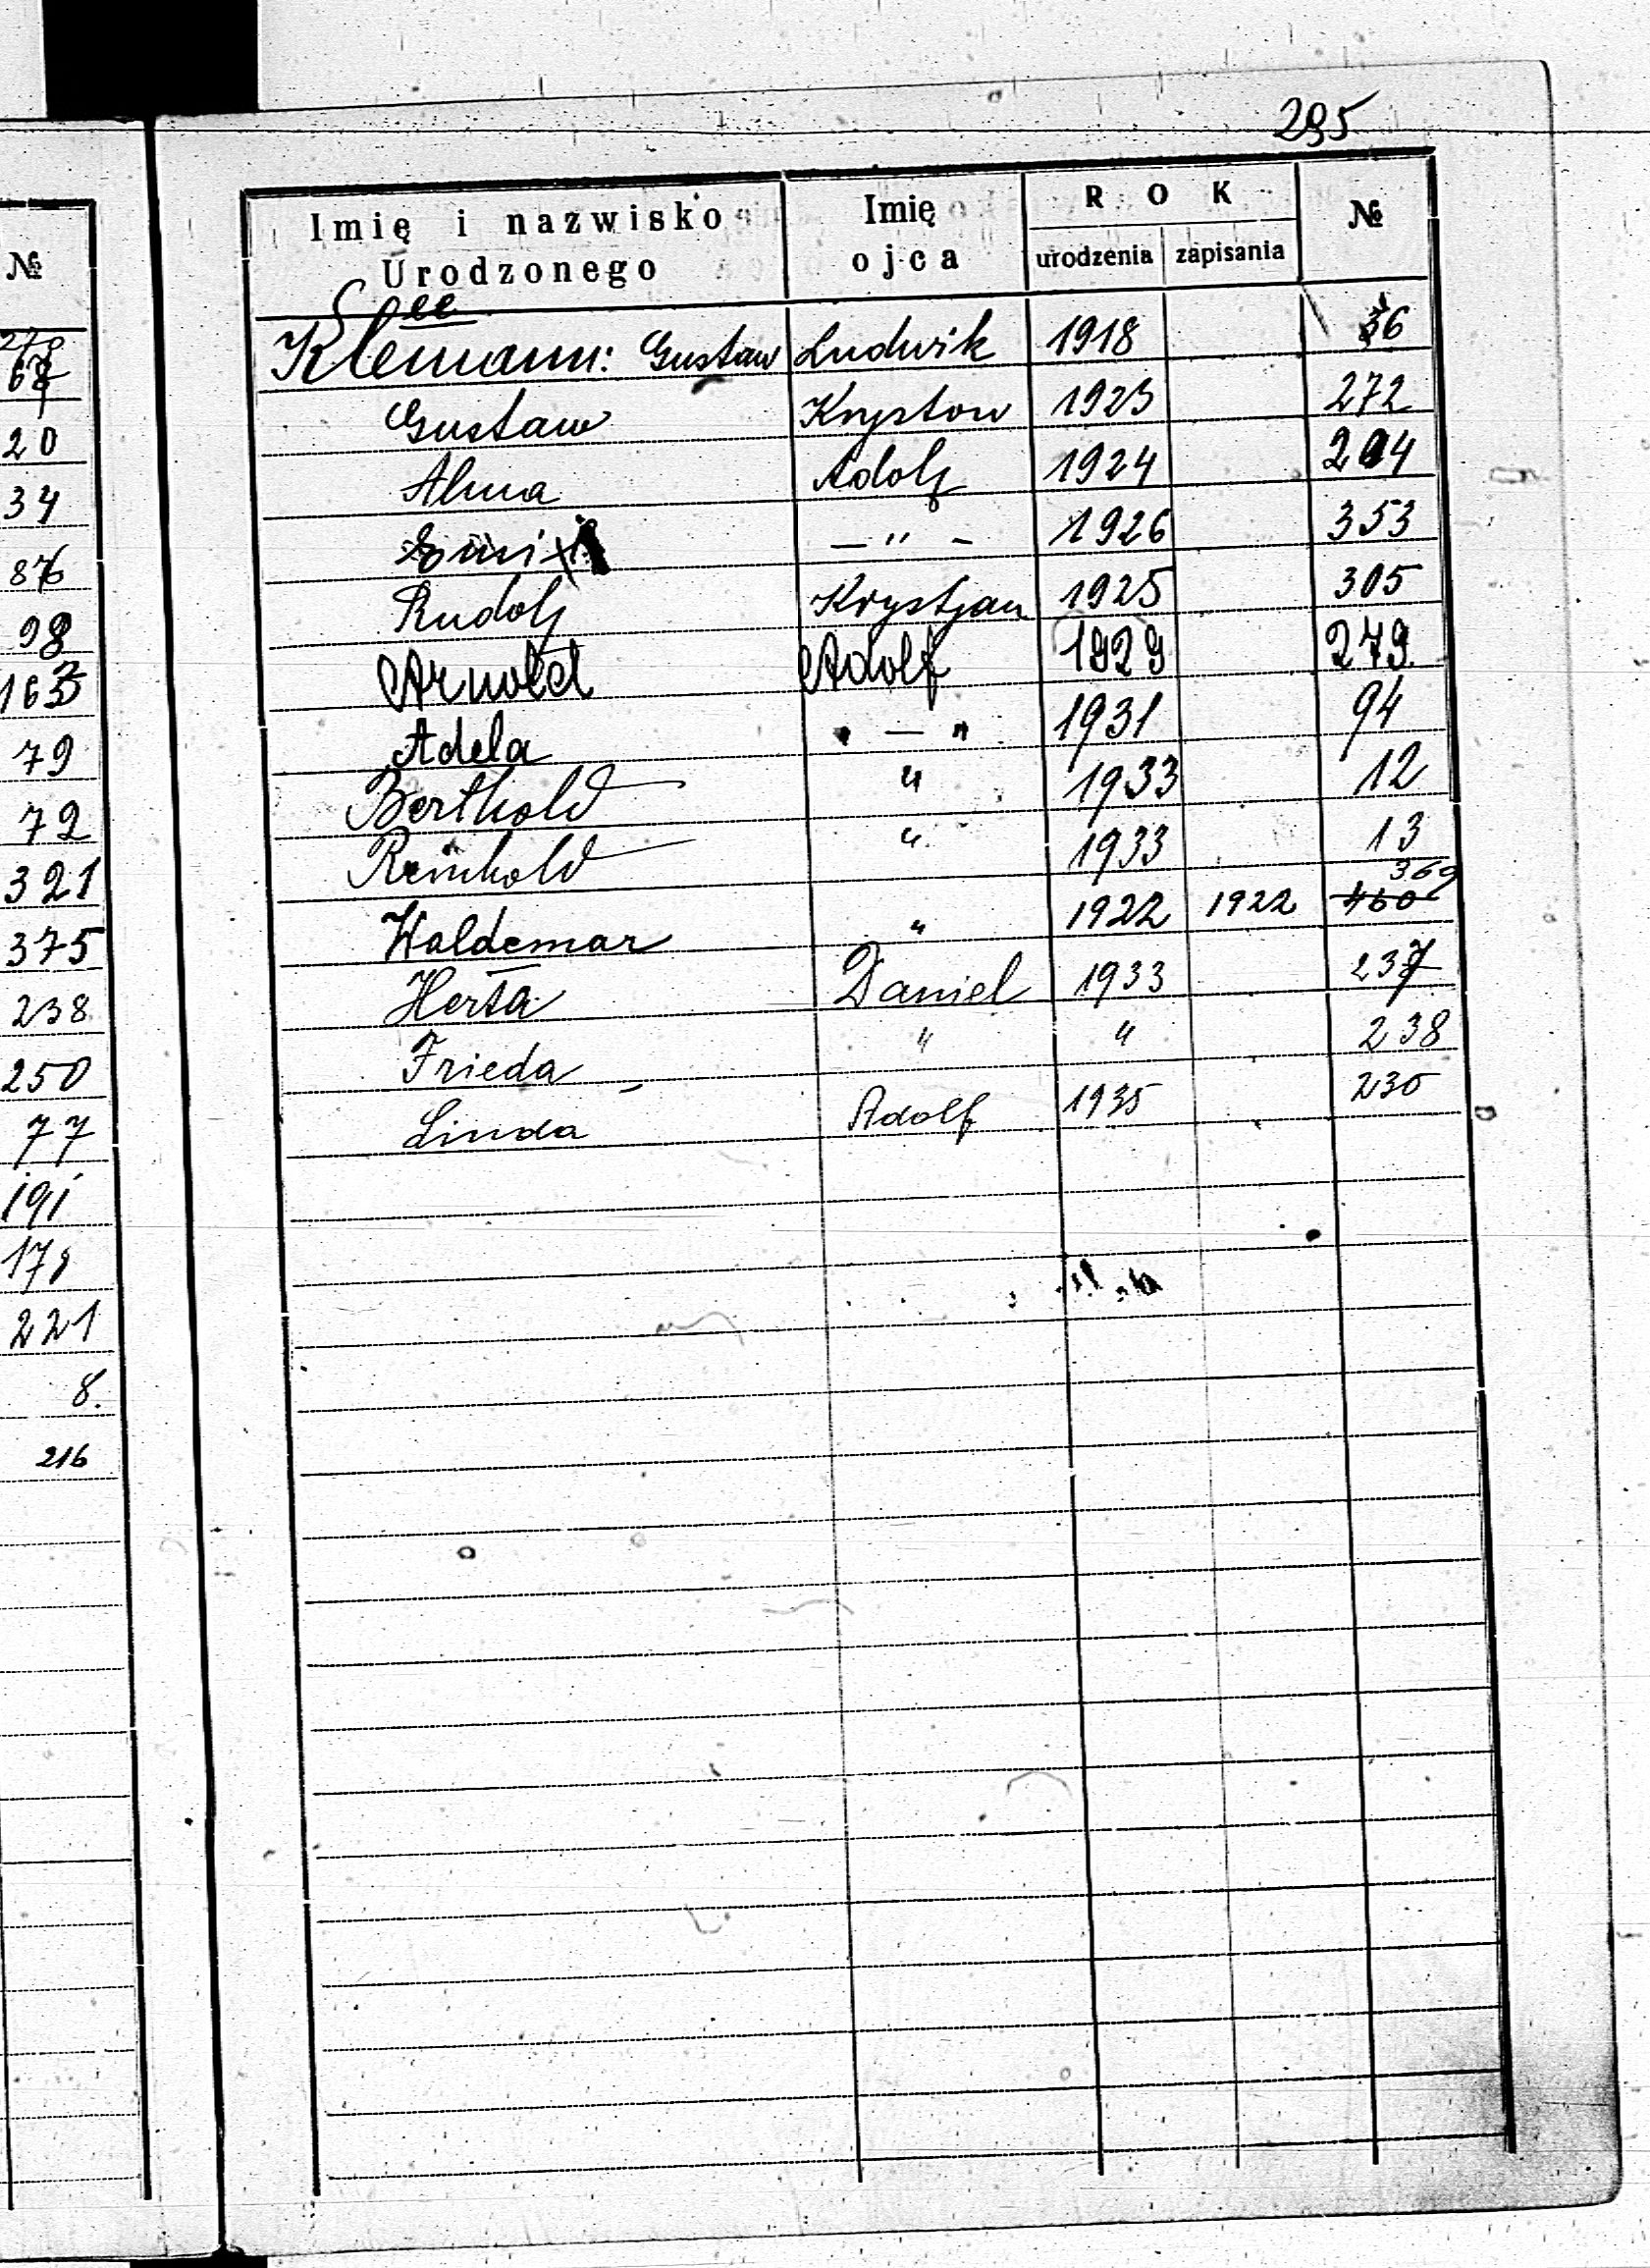 295
Imię i nazwisko Urodzonego Imię ojca ROK urodzenia zapisania №
ee
Klemann: Gustaw Ludwik 1918 36
Gustaw Krystow 1923 272
Alma Adolf 1924 204
Emil — " - 1926 353
Rudolf Krystjan 1925 305
Arnold Adolf 1929 279.
Adela " — " 1931 94
Berthold " 1933 12
Reinhold " 1933 13
369
Waldemar " 1922 1922 460
Herta Daniel 1933 237
Frieda " " 238
Linda Adolf 1935 230
№
20
34
876
98
79
72
321
375
238
250
77
191
221
8.
216